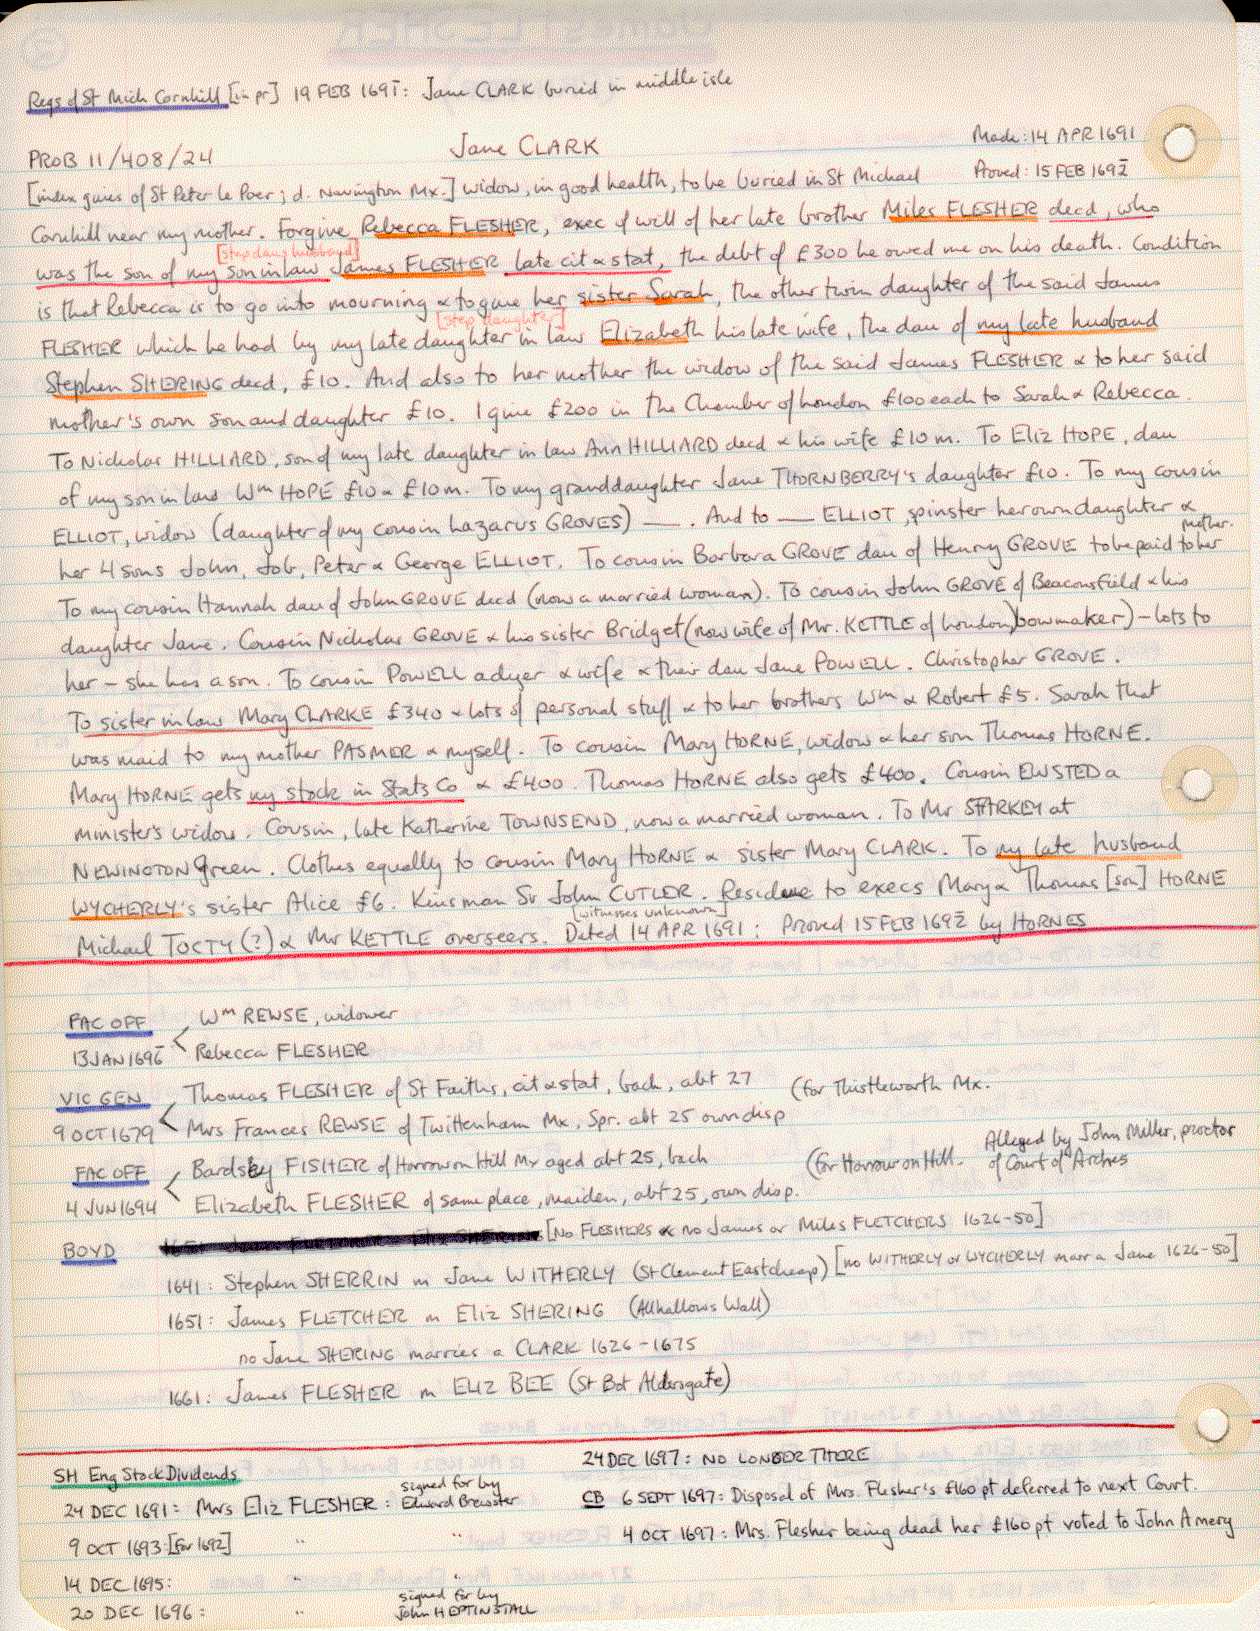 Regs of St Mich Cornhill [in pr] 19 FEB 1691/2: Jane CLARK buried in middle isle
PROB 11/408/24 Jane CLARK Made: 14 APR 1691
[index gives of St Peter le Poer; d. Newington Mx.] widow, in good health, to be buried in St Michael Proved: 15 FEB 1691/2
Cornhill near my mother. Forgive Rebecca FLESHER, exec of will of her late brother Miles FLESHER decd, who
[step daus husband]
was the son of my son in law James FLESHER late cit & stat, the debt of £300 he owed me on his death. Condition
is that Rebecca is to go into mourning & to give her sister Sarah, the other twin daughter of the said James
[step daughter]
FLESHER which he had by my late daughter in law Elizabeth his late wife, the dau of my late husband
Stephen SHERING decd, £10. And also to her mother the widow of the said James FLESHER & to her said
mother's own son and daughter £10. I give £200 in the Chamber of London £100 each to Sarah & Rebecca.
To Nicholas HILLIARD, son of my late daughter in law Ann HILLIARD decd & his wife £10 m. To Eliz HOPE, dau
of my son in law Wm HOPE £10 & £10 m. To my granddaughter Jane THORNBERRY's daughter £10. To my cousin
ELLIOT, widow (daughter of my cousin Lazarus GROVES) —. And to — ELLIOT, spinster her own daughter &
her 4 sons John, Job, Peter & George ELLIOT. To cousin Barbara GROVE dau of Henry GROVE to be paid to her mother.
To my cousin Hannah dau of John GROVE decd (now a married woman). To cousin John GROVE of Beaconsfield & his
daughter Jane. Cousin Nicholas GROVE & his sister Bridget (now wife of Mr. KETTLE of London, bowmaker) – lots to
her – she has a son. To cousin POWELL a dyer & wife & their dau Jane POWELL. Christopher GROVE.
To sister in law Mary CLARKE £340 & lots of personal stuff & to her brothers Wm & Robert £5. Sarah that
was maid to my mother PASMER & myself. To cousin Mary HORNE, widow & her son Thomas HORNE.
Mary HORNE gets my stock in Stats Co & £400. Thomas HORNE also gets £400. Cousin EWSTED a
minister's widow. Cousin, late Katherine TOWNSEND, now a married woman. To Mr STARKEY at
NEWINGTON Green. Clothes equally to cousin Mary HORNE & sister Mary CLARK. To my late husband
WYCHERLY's sister Alice £6. Kinsman Sr John CUTLER. Residue to execs Mary & Thomas [son] HORNE
[witnesses unknown]
Michael TOCTY(?) & Mr KETTLE overseers. Dated 14 APR 1691: Proved 15 FEB 1691/2 by HORNES
FAC OFF Wm REWSE, widower
13 JAN 1696 Rebecca FLESHER
VIC GEN Thomas FLESHER of St Faiths, cit & stat, bach, abt 27 (for Thistleworth Mx.
9 OCT 1679 Mrs Frances REWSE of Twittenham Mx, Spr. abt 25 own disp
FAC OFF Bardsey FISHER of Harrow on Hill Mx aged abt 25, bach (for Harrow on Hill. Alleged by John Miller, proctor of Court of Arches
4 JUN 1694 Elizabeth FLESHER of same place, maiden, abt 25, own disp.
BOYD [NO FLESHERS & no James or Miles FLETCHERS 1626-50]
1641: Stephen SHERRIN m Jane WITHERLY (St Clement Eastcheap) [no WITHERLY or WYCHERLY marr a Jane 1626-50]
1651: James FLETCHER m Eliz SHERING (Allhallows Wall)
no Jane SHERING marries a CLARK 1626-1675
1661: James FLESHER m ELIZ BEE (St Bot Aldersgate)
24 DEC 1697: NO LONGER THERE
SH Eng Stock Dividends
24 DEC 1691: Mrs Eliz FLESHER: signed for by Edward Brewster
CB 6 SEPT 1697: Disposal of Mrs. Flesher's £160 pt deferred to next Court.
9 OCT 1693: [for 1692] " "
4 OCT 1697: Mrs. Flesher being dead her £160 pt voted to John Amery
14 DEC 1695: " "
20 DEC 1696: " signed for by John HEPTINSTALL